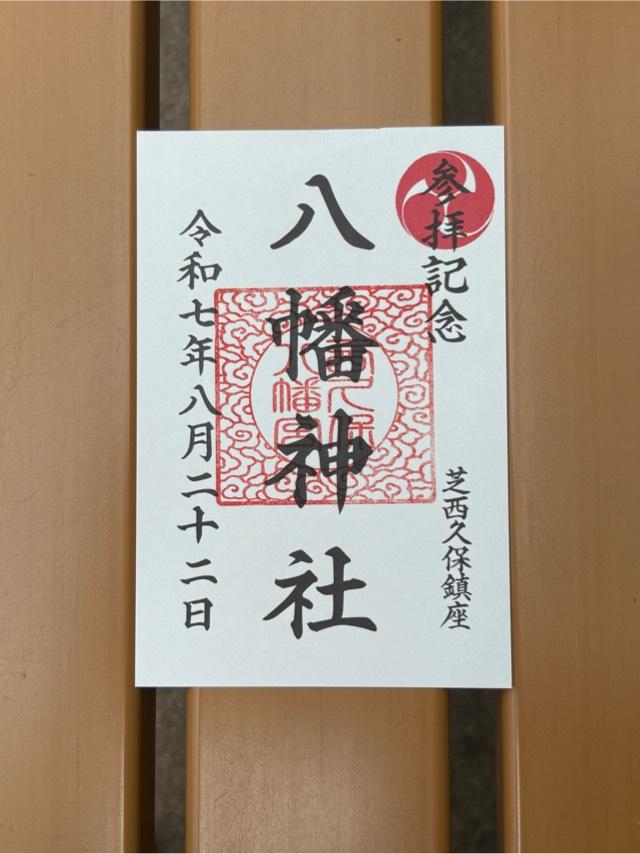 参拝記念
芝西久保鎮座
八幡神社
令和七年八月二十二日